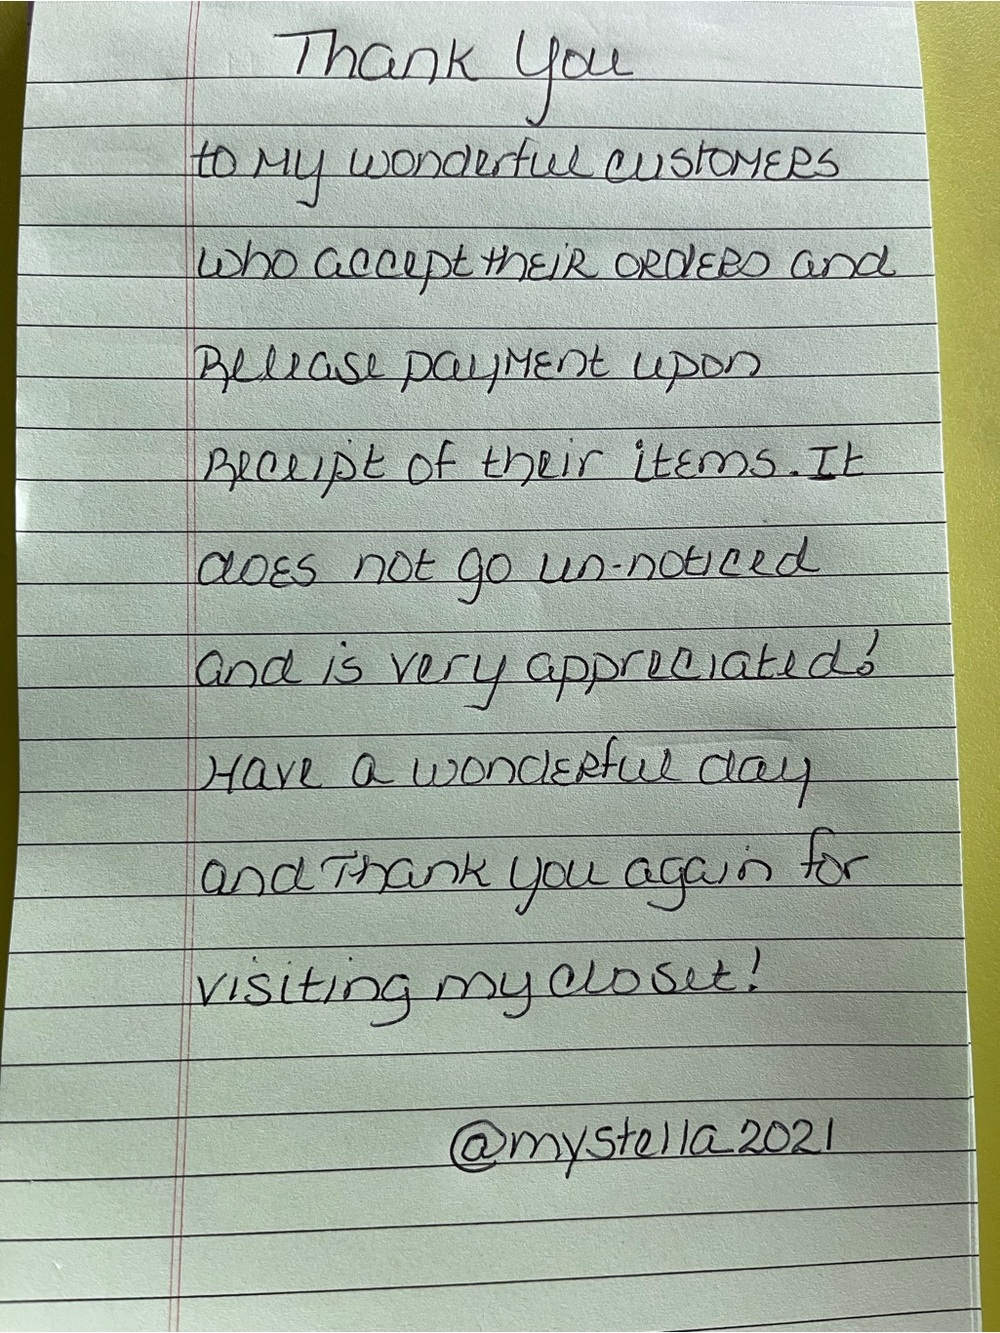 Thank You
to My wonderful customers
who accept their orders and
Release payment upon
Receipt of their items. It
does not go un-noticed
and is very appreciated!
Have a wonderful day
and Thank you again for
visiting my closet!
@mystella2021